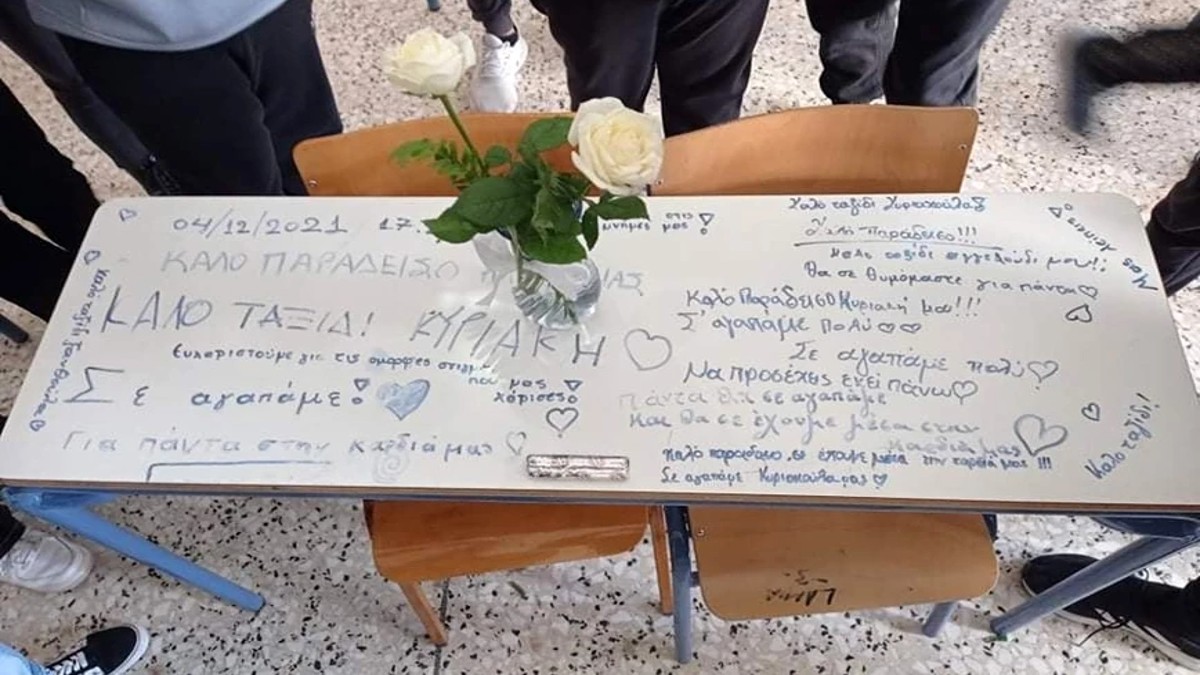 04/12/2021 17.
ΚΑΛΟ ΠΑΡΑΔΕΙΣΟ
ΚΑΛΟ ΤΑΞΙΔΙ ΚΥΡΙΑΚΗ
Ευχαριστούμε για τις ομορφες στιγμ
που μας
χάρισες!
Σε αγαπάμε!
Για πάντα στην καρδιά μας
στις
μνήμες μας!
Καλό ταξίδι Κυριακούλα
Καλό Παράδεισο!!!
Καλο ταξίδι αγγελούδι μου!!
Θα σε θυμόμαστε για πάντα
Μας λείπεις
Καλό Παράδεισο Κυριακή μου!!!
Σ' αγαπάμε πολύ
Σε αγαπάμε πολύ
Να προσέχεις εκεί πάνω
Πάντα θα σε αγαπάμε
Και θα σε έχουμε μέσα στην
καρδιά μας
Καλό παράδεισο, σε έχουμε μέσα την καρδιά μας!!!
Σε αγαπάμε Κυριακούλα μας
Καλο ταξίδι!